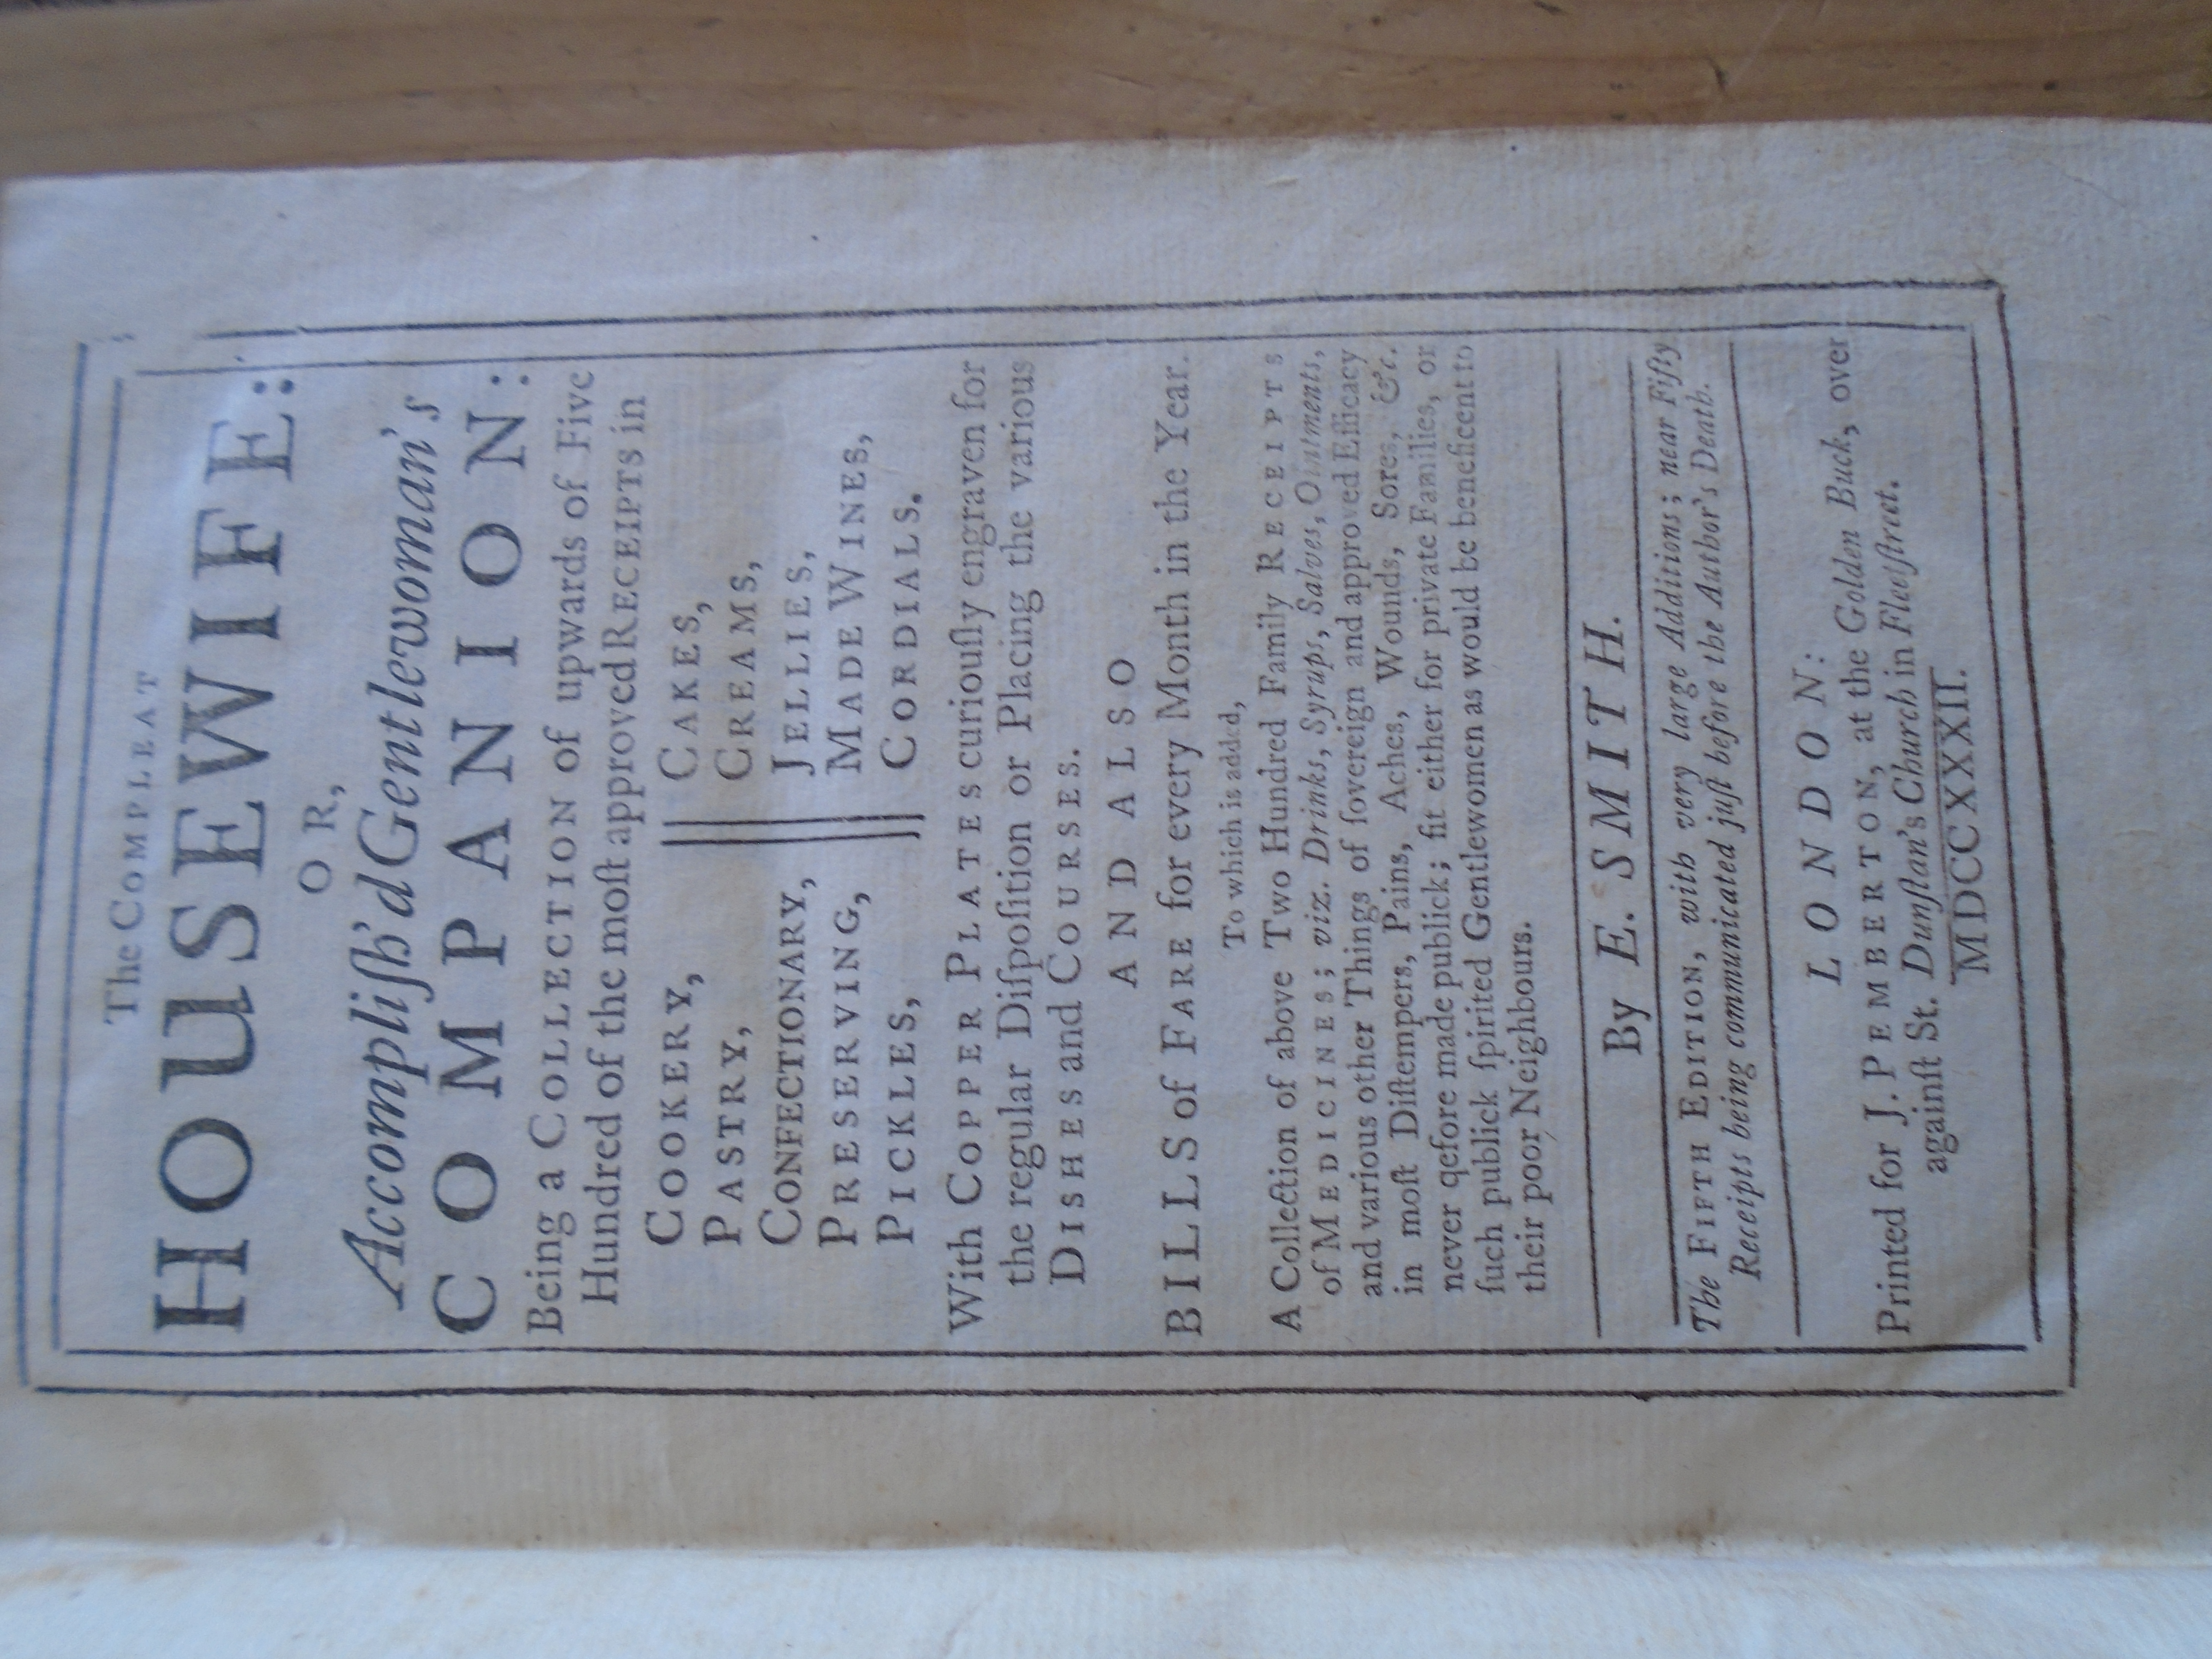 The COMPLEAT
HOUSEWIFE:
OR,
Accompliſh'd Gentlewoman's
COMPANION:
Being a COLLECTION of upwards of Five
Hundred of the moſt approved RECEIPTS in
COOKERY, CAKES,
PASTRY, CREAMS,
CONFECTIONARY, JELLIES,
PRESERVING, MADE WINES,
PICKLES, CORDIALS.
With COPPER PLATES curiouſly engraven for
the regular Diſpoſition or Placing the various
DISHES and COURSES.
AND ALSO
BILLS of FARE for every Month in the Year.
To which is added,
A Collection of above Two Hundred Family RECEIPTS
of MEDICINES; viz. Drinks, Syrups, Salves, Ointments,
and various other Things of ſovereign and approved Efficacy
in moſt Diſtempers, Pains, Aches, Wounds, Sores, &c.
never qefore made publick; fit either for private Families, or
ſuch publick ſpirited Gentlewomen as would be beneficent to
their poor Neighbours.
By E. SMITH.
The FIFTH EDITION, with very large Additions; near Fifty
Receipts being communicated juſt before the Author's Death.
LONDON:
Printed for J. PEMBERTON, at the Golden Buck, over
againſt St. Dunſtan's Church in Fleetſtreet.
MDCCXXXII.